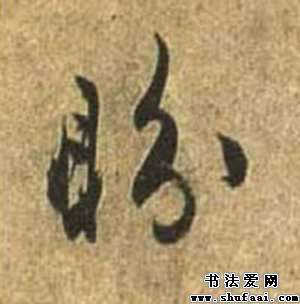 盼
书法爱网
www.shufaai.com